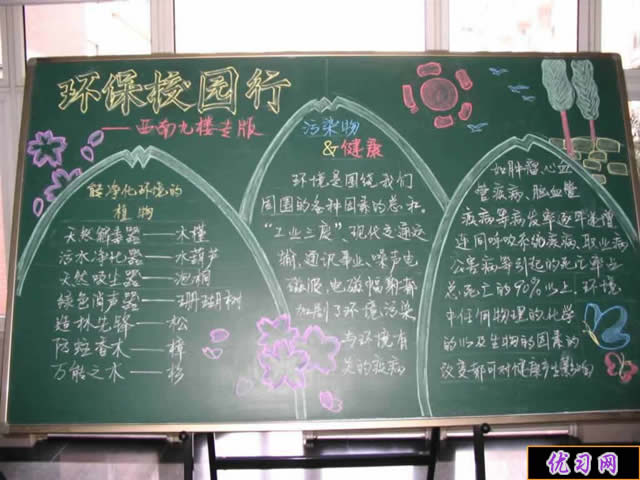 环保校园行
——西南九楼专版
能净化环境的
植物
天然解毒器——木槿
污水净化器——水葫芦
天然吸尘器——泡桐
绿色消声器——珊瑚树
造林先锋——松
防蛀香木——樟
万能之木——杉
污染物
&健康
环境是围绕我们
周围的各种因素的总和。
"工业三废"、现代交通运
输、通讯事业、噪声电
磁服、电磁幅射都
加剧了环境污染
与环境有
关的疾病
如肿瘤、心血
管疾病、脑血管
疾病等病发率逐年递增
连同呼吸系统疾病、职业病
公害病等引起的死亡率占
总死亡的90%以上,环境
中任何物理的化学
的以及生物的因素的
改变都可对健康产生影响
优习网